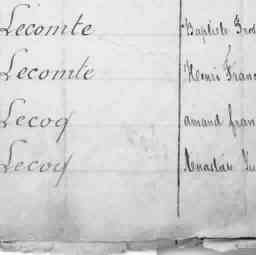 Lecomte Baptiste
Lecomte Henri Fran
Lecoq amand fran
Lecoq